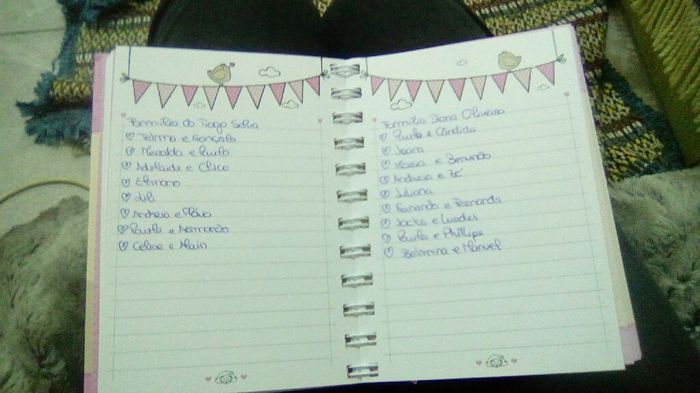 Família do Tiago Silva
Telma e Gonçalo
Mafalda e Paulo
Adelaide e Chico
Elimano
Lili
Andreia e Flávio
Paula e Armando
Celise e Alain
Família Diana Oliveira
Paulo e Cândida
Joana
e Bernardo
Andreia e Zé
Juliana
Fernando e Fernanda
e Lurdes
Paula e Phillipe
Belmina e Manuel